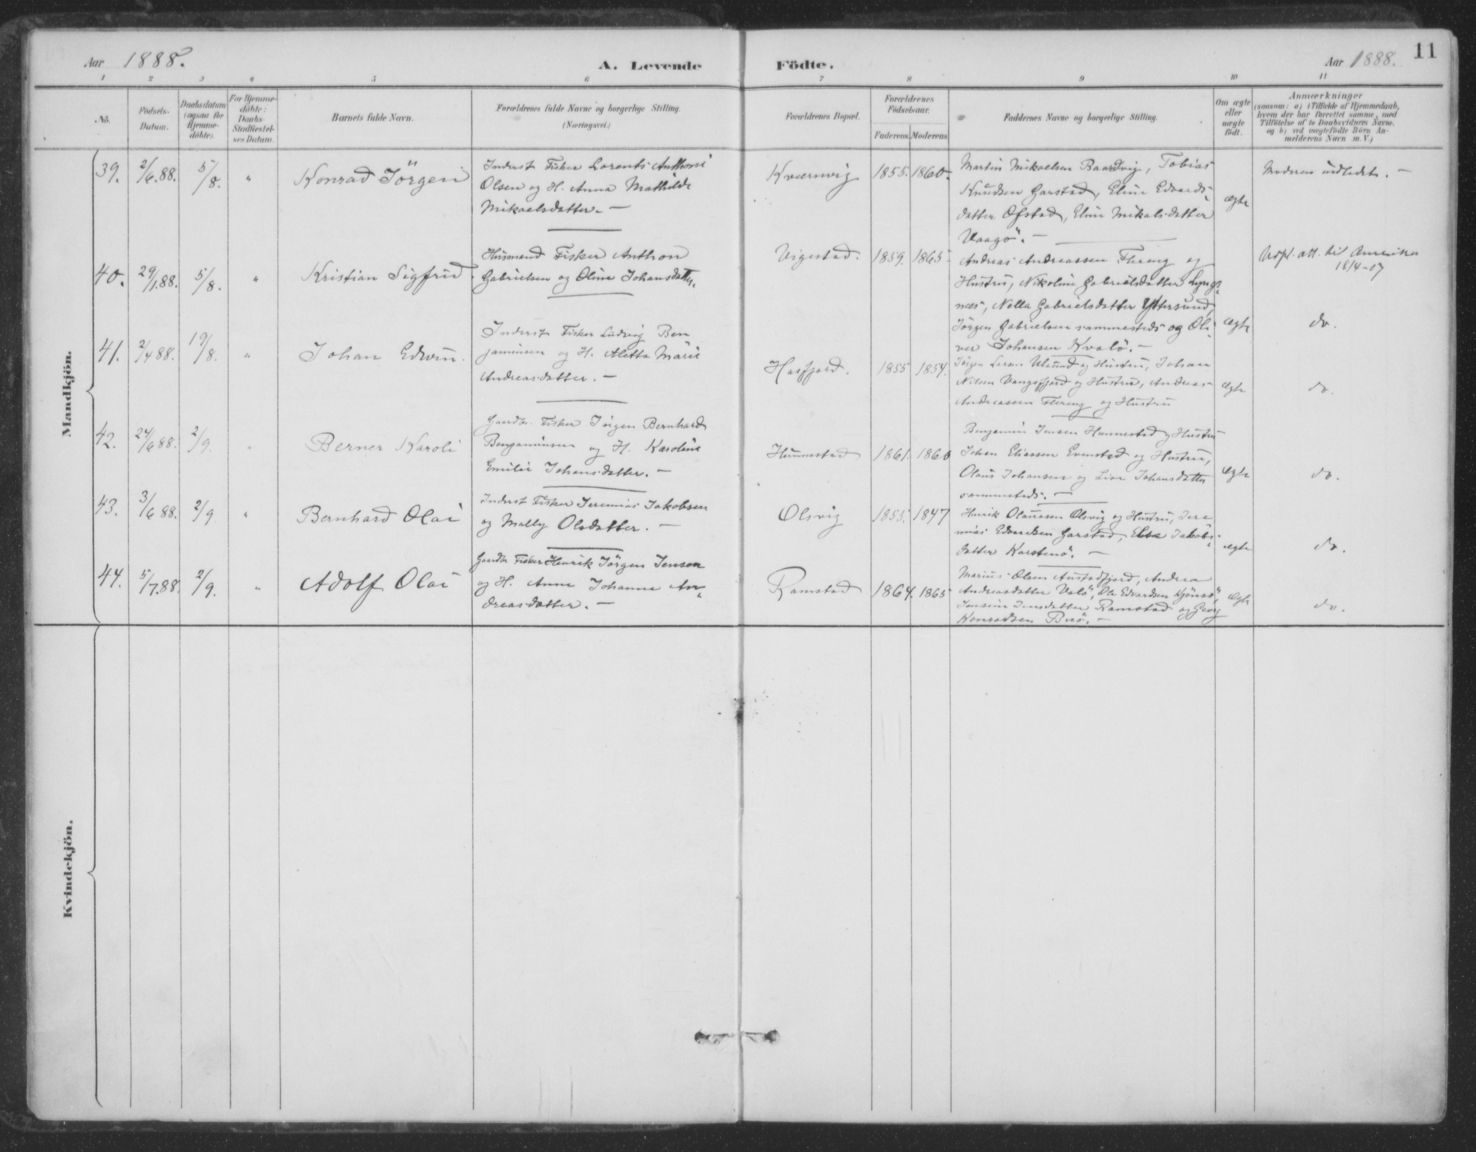 Aar 1888.
A. Levende Födte.
Aar 1888.
11
1 2 3 4 5 6 7 8 9 10 11
No.
Födsels-
Datum.
Daabsdatum
(ogsaa for
Hjemme-
döbte).
For Hjemme-
döbte:
Daabs-
Stadfæstel-
ses-Datum.
Barnets fulde Navn.
Forældrenes fulde Navne og borgerlige Stilling.
(Næringsvei.)
Forældrenes Bopæl.
Forældrenes
Födselsaar.
Faderens. Moderens.
Faddernes Navne og borgerlige Stilling.
Om ægte
eller
uægte
födt.
Anmærkninger
(saasom: a) i Tilfælde af Hjemmedaab,
hvem der har forrettet samme, med
Tilföielse af to Daabsvidners Navne,
og b) ved uægtefödte Börn An-
melderens Navn m. V.)
Mandkjön.
39. 2/6.88. 5/8. " Konrad Jörgen
Inderst Fisker Lorents Anthoni
Olsen og H. Anna Mathilde
Mikaelsdatter. —
Kværnvig 1855. 1860.
Martin Mikaelsen Baardvig, Tobias
Knudsen Garstad, Eline Edvards-
datter Ofstad, Eline Mikalsdatter
Vaagö. —
ægte
Moderen indledet. —
40. 29/1.88. 5/8. " Kristian Sigfrid
Husmand Fisker Anthon
Gabrielsen og Oline Johansdatter.
Vigestad. 1859. 1865
Andreas Andreassen Flereng og
Hustru, Nikoline Gabrielsdatter Lyng-
næs, Nella Gabrielsdatter Yttersund,
Jörgen Gabrielsen sammesteds og Oli-
ver Johansen Kvalö. —
ægte
Utft. att. til Amerika
18/4-07
do.
41. 2/4 88. 19/8. " Johan Edvin.
Inderst Fisker Ludvig Ben
jaminsen og H. Aletta Marie
Andreasdatter. —
Horfjord. 1855 1854.
Hustru, Johan
Nilsen og Hustru, Andreas
Andreassen Flereng og Hustru
ægte
do.
42. 24/6 88. 2/9. Berner Karoli
Gaardbr. Fisker Jörgen Bernhard
Benjaminsen og H. Karoline
Emilie Johansdatter. —
Hummestad 1861. 1860
Benjamin Jensen Hummestad og Hustru
Johan Eliassen Evenstad og Hustru,
Olaus Johansen og Johansdatter
sammesteds. —
ægte
do.
43. 3/6 88. 2/9 " Bernhard Olai
Inderst Fisker Jeremias Jakobsen
og Mally Olsdatter. —
Olsvig 1855. 1847
Henrik Olaussen Olsvig og Hustru, Jere
mias Edvardsen Garstad, Elen Jakobs-
datter Karstenö. —
ægte
do.
44. 5/7.88. 2/9. " Adolf Olai
Gaardbr. Fisker Henrik Jörgen Jensen
og H. Anne Johanna An-
dreasdatter. —
Ramstad 1864. 1865
Marius Olsen Austafjord, Andrea
Andreasdatter Valö, Ole Edvardsen
Jensine Jensdatter Ramstad og Georg
Konradsen —
ægte
do.
Kvindekjön.